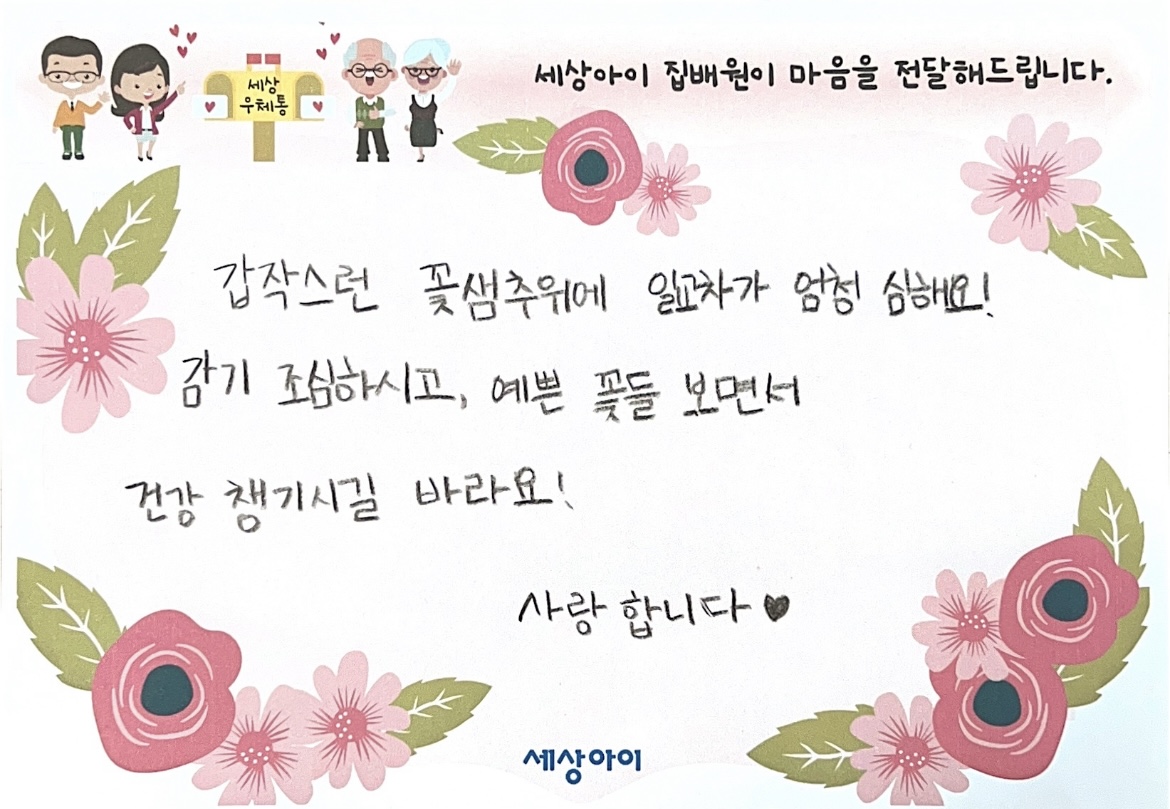 세상아이 집배원이 마음을 전달해드립니다.
세상
우체통
갑작스런 꽃샘추위에 일교차가 엄청 심해요!
감기 조심하시고, 예쁜 꽃들 보면서
건강 챙기시길 바라요!
사랑합니다♥
세상아이